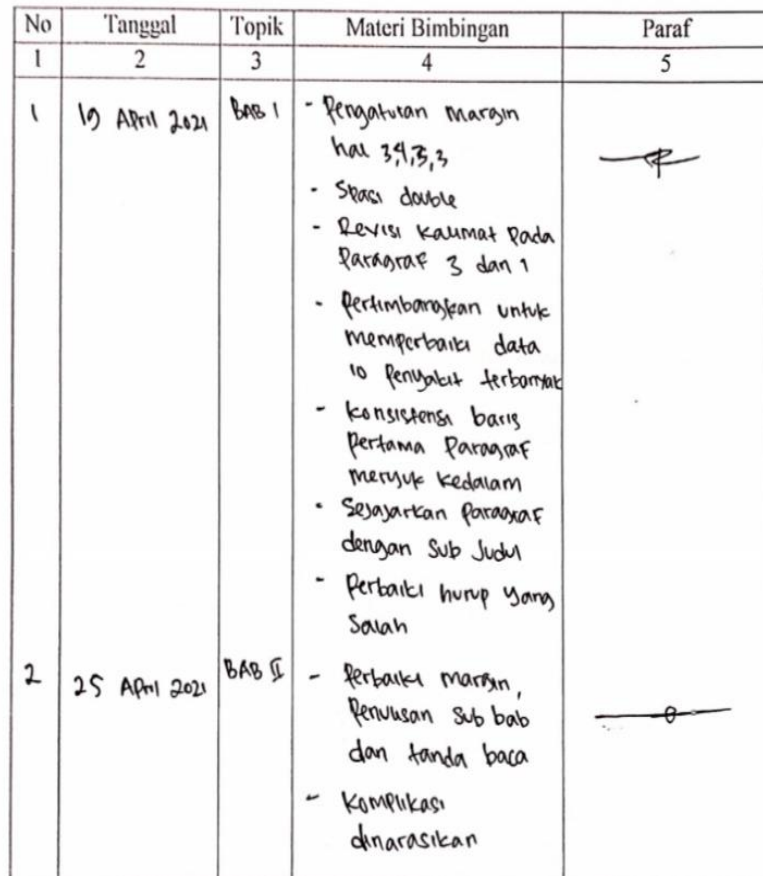 No Tanggal Topik Materi Bimbingan Paraf
1 2 3 4 5
1 19 April 2021 BAB I - Pengaturan Margin
hal 3,4,3,3
- Spasi double
- Revisi Kalimat Pada
Paragraf 3 dan 1
- Pertimbangkan untuk
memperbaiki data
10 Penyakit terbanyak
- Konsistensi baris
Pertama Paragraf
menjuk kedalam
- Sejajarkan Paragraf
dengan Sub Judul
- Perbaiki hurup yang
Salah
2 25 April 2021 BAB II - Perbaiki margin,
Penulisan Sub bab
dan tanda baca
- Komplikasi
dinarasikan